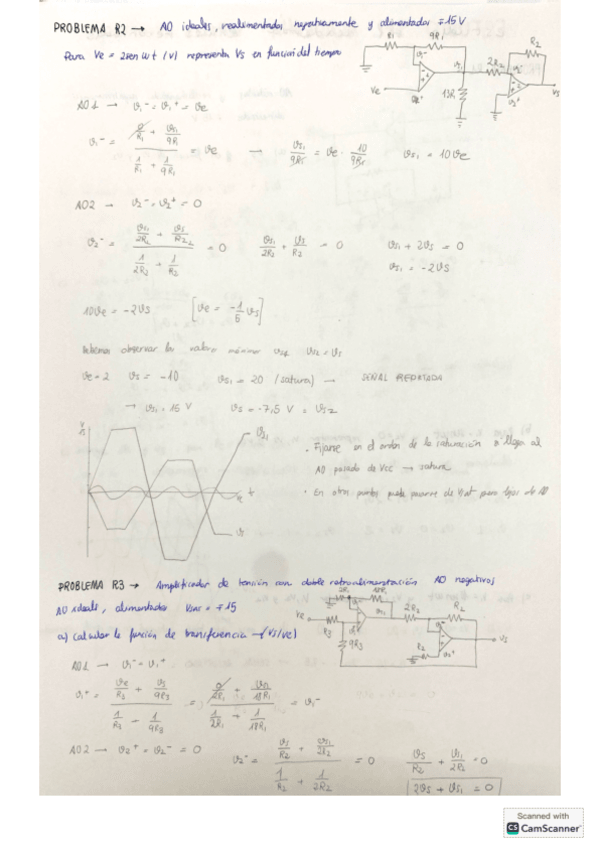 PROBLEMA R2 → AO ideales, realimentados negativamente y alimentados ∓15V
Para Ve = 2sen wt (V) representa Vs en función del tiempo
R1 9R1 R2
v1⁻ vs1 2R2 v2⁻
Ve v1⁺ 13R v2⁺ vs
AO1 → v1⁻ = v1⁺ = ve
v1⁻ = (0/R1 + vs1/9R1) / (1/R1 + 1/9R1) = ve → vs1/9R1 = ve · 10/9R1 vs1 = 10ve
AO2 → v2⁻ = v2⁺ = 0
v2⁻ = (vs1/2R2 + vs/R2) / (1/2R2 + 1/R2) = 0 vs1/2R2 + vs/R2 = 0 vs1 + 2vs = 0
vs1 = -2vs
10ve = -2vs [ve = -1/5 vs]
observar los valores máximos vs2 = vs
ve = 2 vs = -10 vs1 = 20 (satura) → SEÑAL RECORTADA
→ vs1 = 15 V vs = -7,5 V = vs2
vs1
ve t
vs
· Fijarse en el orden de la saturación si llega al
AO pasado de Vcc → satura
· En otros puntos puede pasarse de Vsat pero lejos de AO
PROBLEMA R3 → Amplificador de tensión con doble retroalimentación AO negativos
AO ideales, alimentados ∓15
a) calcular la función de transferencia → (vs/ve)
2R1 18R1
Ve R3 vs1 2R2 R2
9R3 R2 v2⁺ vs
AO1 → v1⁻ = v1⁺
v1⁺ = (ve/R3 + vs/9R3) / (1/R3 + 1/9R3) = (0/2R1 + vs1/18R1) / (1/2R1 + 1/18R1) = v1⁻
AO2 → v2⁺ = v2⁻ = 0
v2⁻ = (vs/R2 + vs1/2R2) / (1/R2 + 1/2R2) = 0 vs/R2 + vs1/2R2 = 0
2vs + vs1 = 0
Scanned with
CS CamScanner